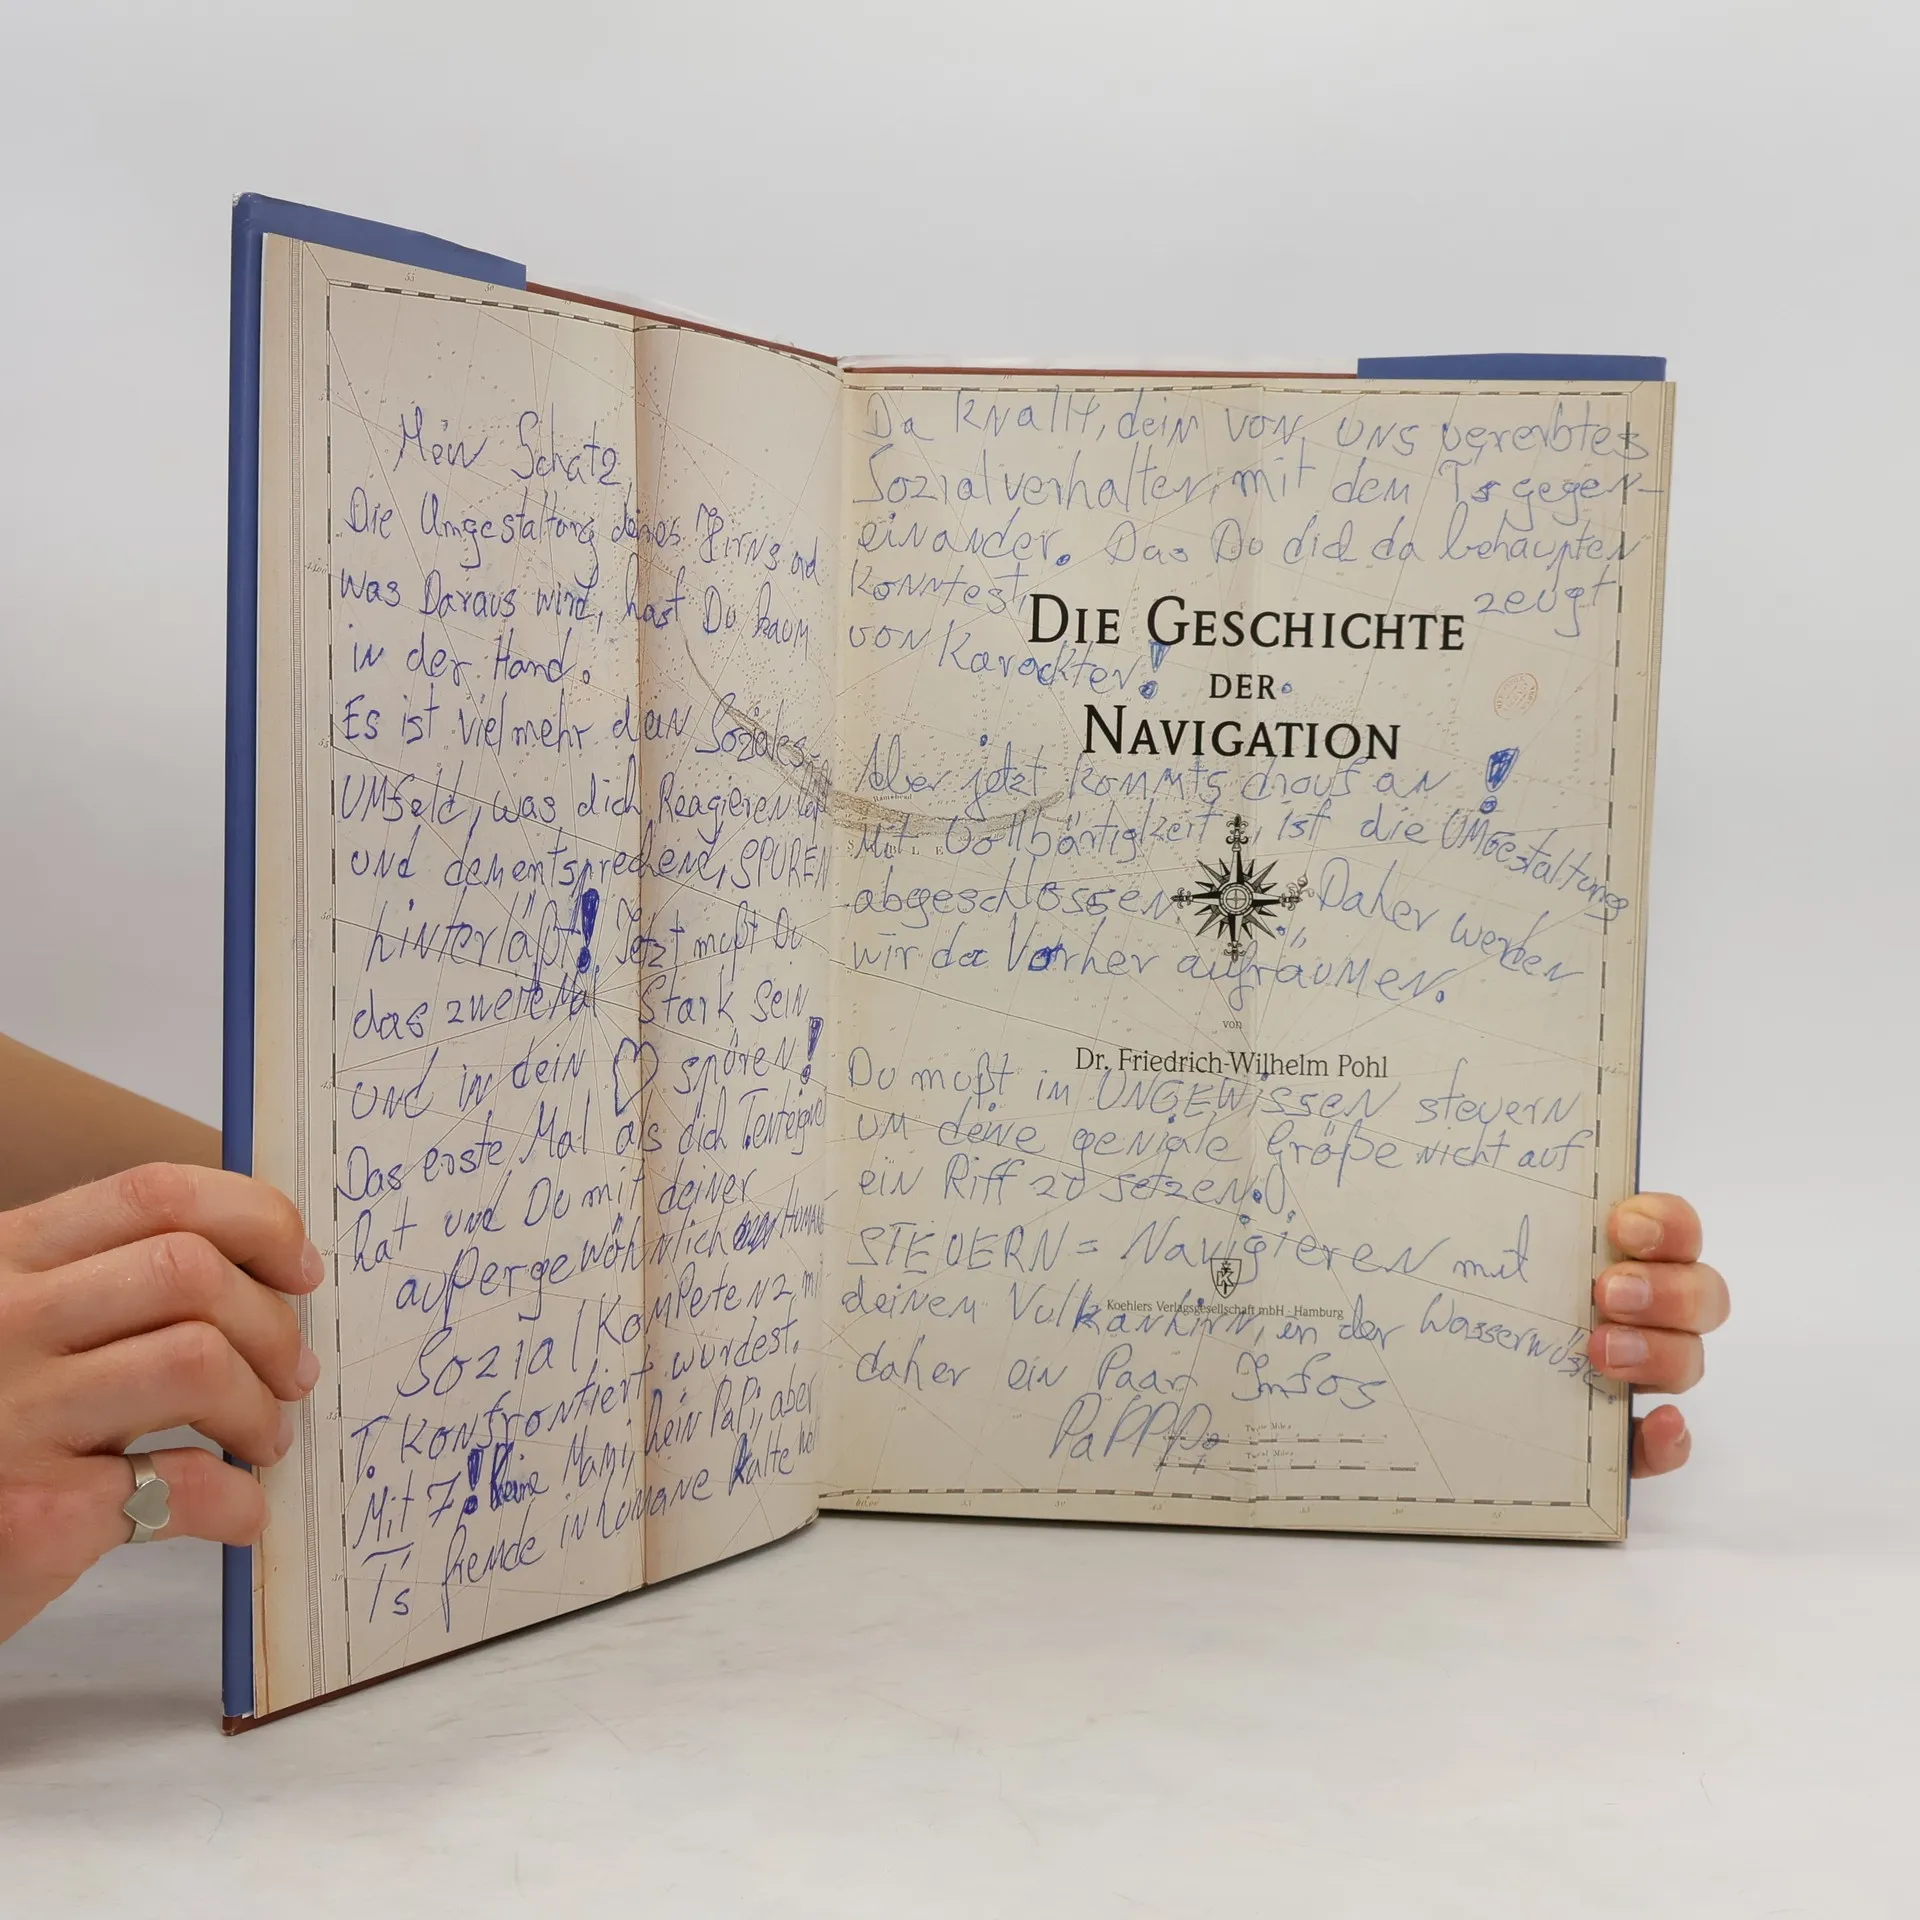 Mein Schatz
Die Umgestaltung deines Hirns und
was Daraus wird, hast Du kaum
in der Hand.
Es ist vielmehr dein Soziales-
UMfeld, was dich Reagieren läßt
und dementsprechend, SPUREN
hinterläßt! Jetzt mußt Du
das zweite Mal Stark sein
und in dein ♡ spüren!
Das erste Mal als dich
hat und Du mit deiner
außergewöhnlich HUMANE
Sozial KomPetenz mit
T. Konfrontiert wurdest.
Mit 7! keine Mami, kein PaPi, aber
T's fremde inhumane Kälte
Da knallt, dein von UNS vererbtes
Sozialverhalten, mit dem T's gegen-
einander. Das Du dich da behaupten
konntest, zeugt
von Karackter!
DIE GESCHICHTE
DER
NAVIGATION
Aber jetzt kommts drauf an!
Mit Vollbärtigkeit, ist die UMgestaltung
abgeschlossen. Daher werden
wir da Vorher aufräumen.
von
Dr. Friedrich-Wilhelm Pohl
Du mußt im UNGEWissen steuern
um deine geniale Größe nicht auf
ein Riff zu setzen.
STEUERN = Navigieren mit
deinem Vulkanhirn, in der Wasserwüste.
Koehlers Verlagsgesellschaft mbH · Hamburg
daher ein Paar Infos
PaPPP.